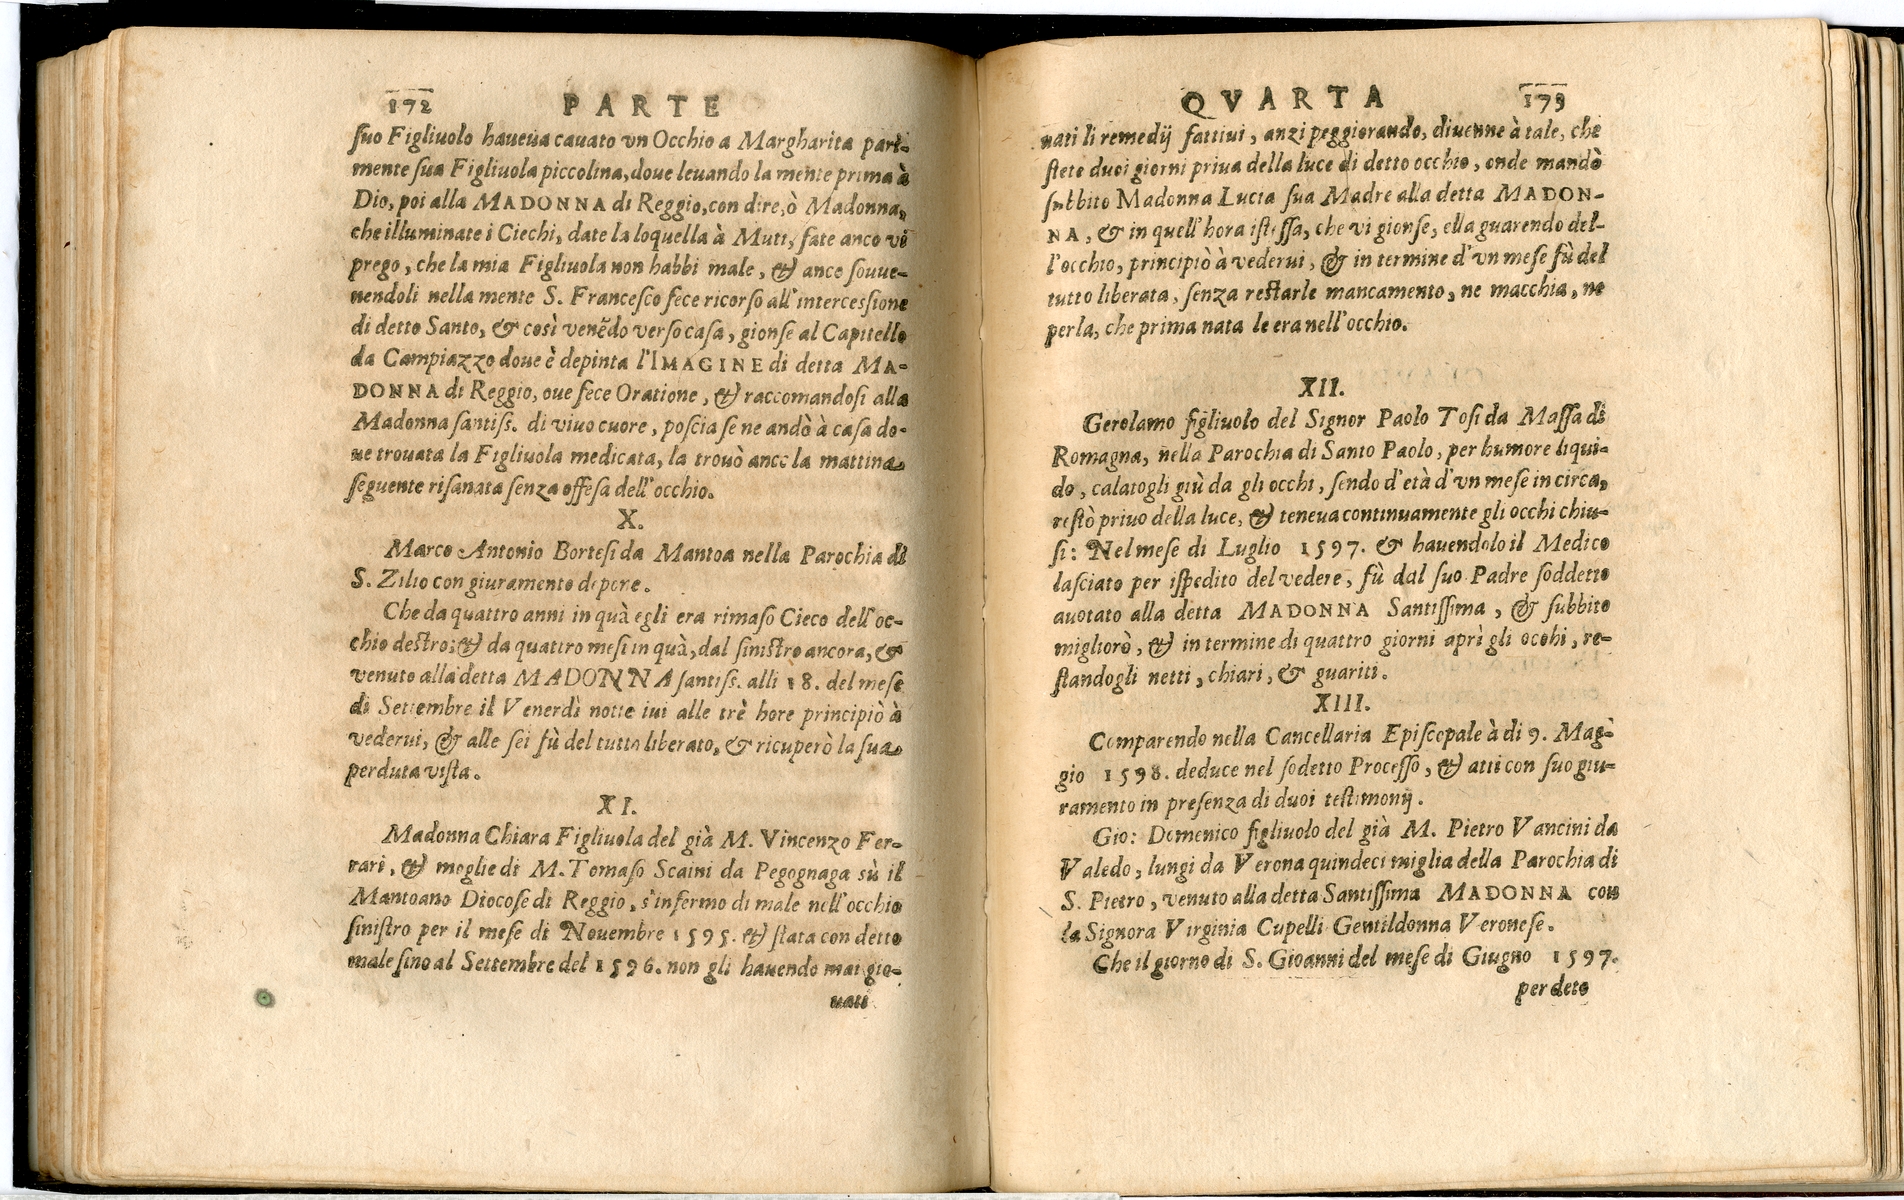 172 PARTE
suo Figliuolo haueua cauato vn Occhio a Margharita pari-
mente sua Figliuola piccolina, doue leuando la mente prima à
Dio, poi alla MADONNA di Reggio, con dire, ò Madonna,
che illuminate i Ciechi, date la loquella à Muti, fate anco vi
prego, che la mia Figliuola non habbi male, & anco souue-
nendoli nella mente S. Francesco fece ricorso all'intercessione
di detto Santo, & così venẽdo verso casa, gionse al Capitello
da Campiazzo doue è depinta l'IMAGINE di detta MA-
DONNA di Reggio, oue fece Oratione, & raccomandosi alla
Madonna santiss. di viuo cuore, poscia se ne andò à casa do-
ue trouata la Figliuola medicata, la trouò anco la mattina
seguente risanata senza offesa dell'occhio.
X.
Marco Antonio Bortesi da Mantoa nella Parochia di
S. Zilio con giuramento depone.
Che da quattro anni in quà egli era rimaso Cieco dell'oc-
chio destro; & da quattro mesi in quà, dal sinistro ancora, &
venuto alla detta MADONNA santiss. alli 18. del mese
di Settembre il Venerdì notte iui alle trè hore principiò à
vederui, & alle sei fù del tutto liberato, & ricuperò la sua
perduta vista.
XI.
Madonna Chiara Figliuola del già M. Vincenzo Fer-
rari, & moglie di M. Tomaso Scaini da Pegognaga sù il
Mantoano Diocese di Reggio, s'infermo di male nell'occhio
sinistro per il mese di Nouembre 1595. & stata con detto
male sino al Settembre del 1596. non gli hauendo mai gio-
uati
QVARTA 173
nati li remedij fattiui, anzi peggiorando, diuenne à tale, che
stete duoi giorni priua della luce di detto occhio, onde mandò
subbito Madonna Lucia sua Madre alla detta MADON-
NA, & in quell'hora istessa, che vi gionse, ella guarendo del-
l'occhio, principiò à vederui, & in termine d'vn mese fù del
tutto liberata, senza restarle mancamento, ne macchia, ne
perla, che prima nata le era nell'occhio.
XII.
Gerolamo figliuolo del Signor Paolo Tosi da Massa di
Romagna, nella Parochia di Santo Paolo, per humore liqui-
do, calatogli giù da gli occhi, sendo d'età d'vn mese in circa,
restò priuo della luce, & teneua continuamente gli occhi chiu-
si: Nel mese di Luglio 1597. & hauendolo il Medico
lasciato per ispedito del vedere, fù dal suo Padre soddetto
auotato alla detta MADONNA Santissima, & subbito
migliorò, & in termine di quattro giorni aprì gli occhi, re-
standogli netti, chiari, & guariti.
XIII.
Comparendo nella Cancellaria Episcopale à di 9. Mag-
gio 1598. deduce nel sodetto Processo, & atti con suo giu-
ramento in presenza di duoi testimonij.
Gio: Domenico figliuolo del già M. Pietro Vancini da
Valedo, lungi da Verona quindeci miglia della Parochia di
S. Pietro, venuto alla detta Santissima MADONNA con
la Signora Virginia Cupelli Gentildonna Veronese.
Che il giorno di S. Gioanni del mese di Giugno 1597.
perdete